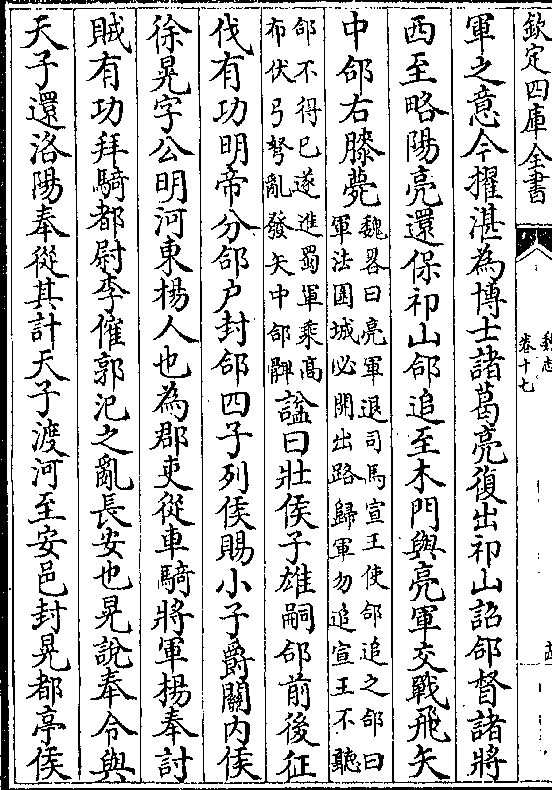 欽定四庫全書
魏志
卷十七
軍之意今擢湛為博士諸葛亮復出祁山詔郃督諸將
西至略陽亮還保祁山郃追至木門與亮軍交戰飛矢
中郃右膝薨
魏畧曰亮軍退司馬宣王使郃追之郃曰
軍法圍城必開出路歸軍勿追宣王不聽
郃不得已遂進蜀軍乘高
布伏弓弩亂發矢中郃髀
諡曰壯侯子雄嗣郃前後征
伐有功明帝分郃户封郃四子列侯賜小子爵關內侯
徐晃字公明河東楊人也為郡吏從車騎將軍楊奉討
賊有功拜騎都尉李傕郭汜之亂長安也晃說奉令與
天子還洛陽奉從其計天子渡河至安邑封晃都亭侯